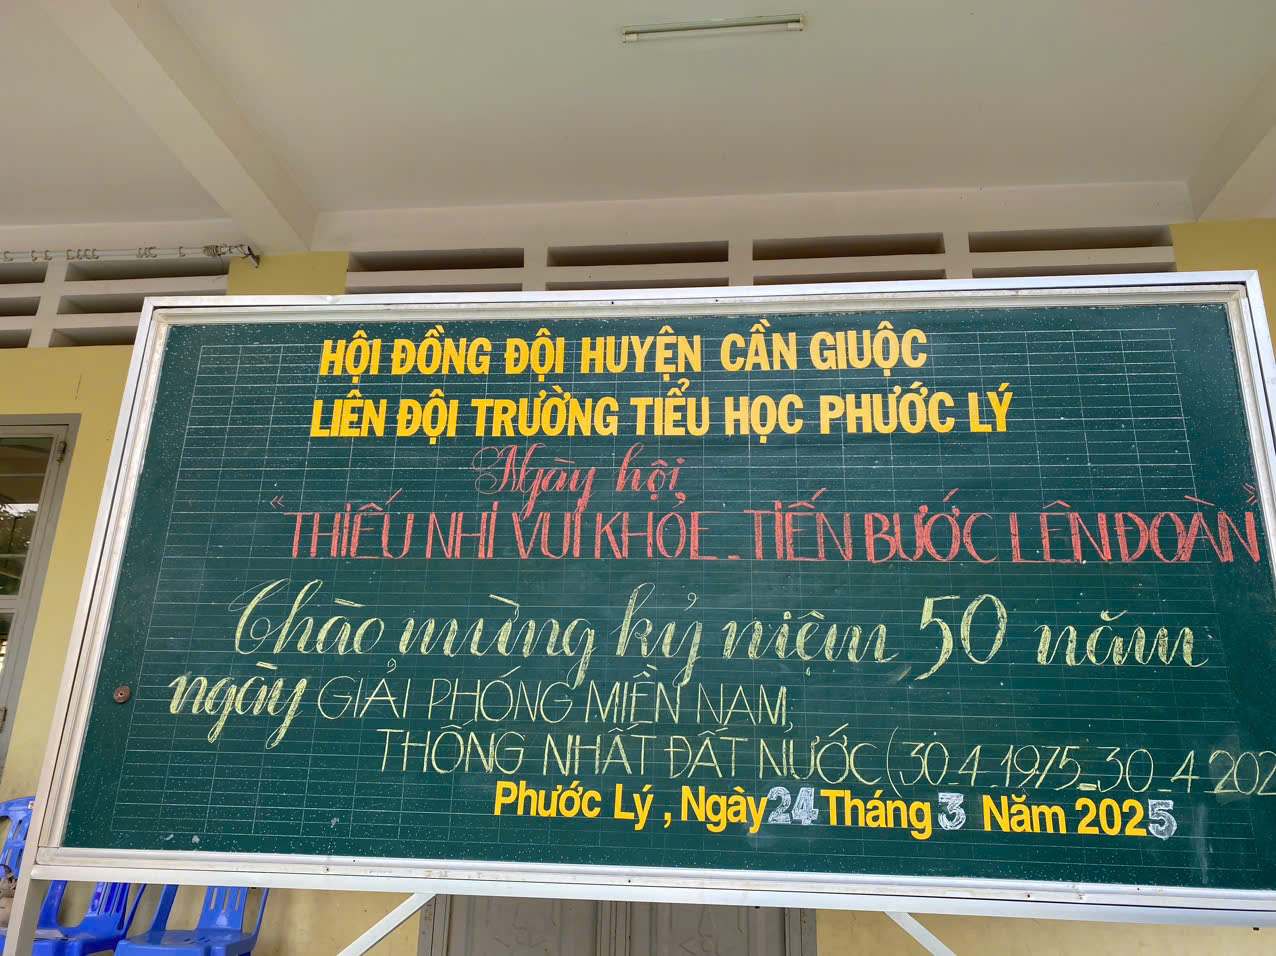 HỘI ĐỒNG ĐỘI HUYỆN CẦN GIUỘC
LIÊN ĐỘI TRƯỜNG TIỂU HỌC PHƯỚC LÝ
Ngày hội
"THIẾU NHI VUI KHỎE - TIẾN BƯỚC LÊN ĐOÀN"
Chào mừng kỷ niệm 50 năm
ngày GIẢI PHÓNG MIỀN NAM,
THỐNG NHẤT ĐẤT NƯỚC (30.4.1975-30.4.202
Phước Lý, Ngày 24 Tháng 3 Năm 2025